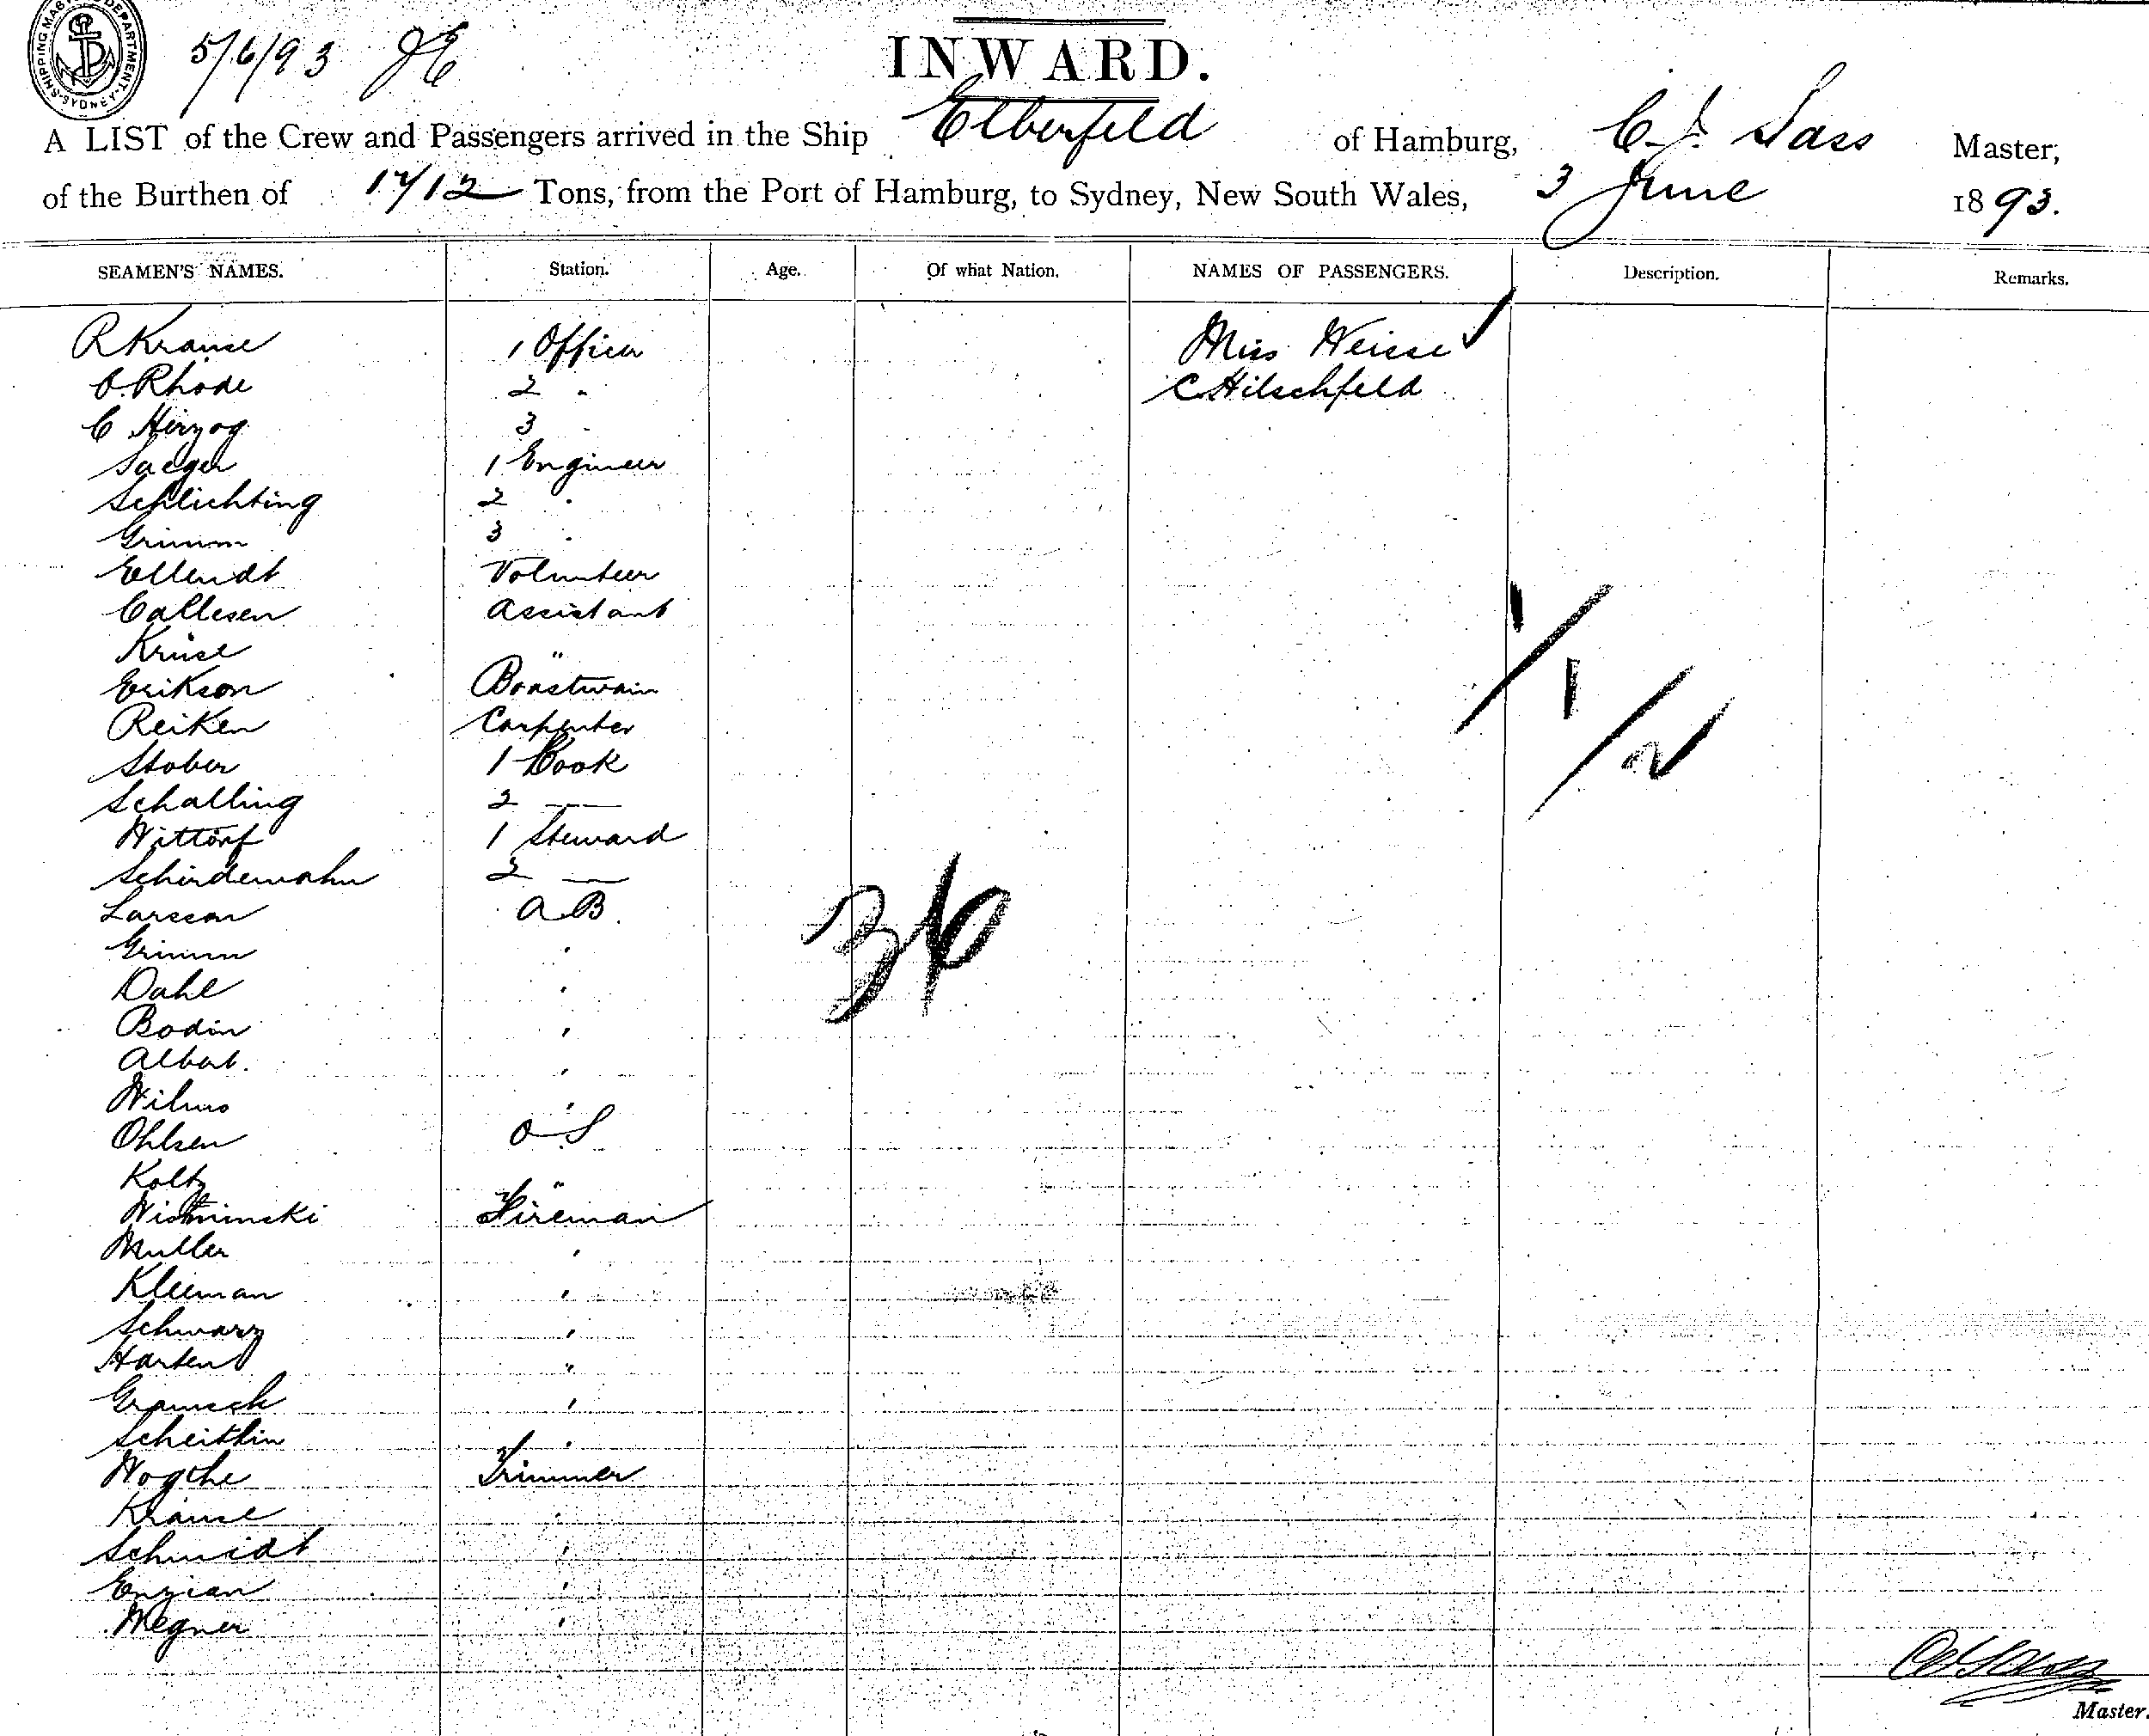 SHIPPING MASTER'S DEPARTMENT. SYDNEY
5/6/93
INWARD.
A LIST of the Crew and Passengers arrived in the Ship Elberfeld of Hamburg, C. J. Sass Master,
of the Burthen of 1712 Tons, from the Port of Hamburg, to Sydney, New South Wales, 3 June 1893.
SEAMEN'S NAMES. Station. Age. Of what Nation. NAMES OF PASSENGERS. Description. Remarks.
R Krause 1 Officer Miss Weisse
O. Rhode 2 " C Hilschfeld
C Herzog 3 "
Saeger 1 Engineer
Schlichting 2 "
Grimm 3 "
Ellendt Volunteer
Callesen Assistant
Kruse "
Erikson Boastwain
Reiken Carpenter
Stober 1 Cook
Schalling 2 —
Wittorf 1 Steward
Schirdewahn 2 —
Larsson A.B.
Grimm "
Dahl "
Bodin "
Albat. "
Wilms "
Ohlsen O S
Koltz "
Fireman
Muller "
Kleeman "
Schwarz "
Harten "
Gramsch "
Scheitlin "
Wogthe Trimmer
Krause "
Schmidt "
Enzian "
Wegner "
36
1/1/2
Master.